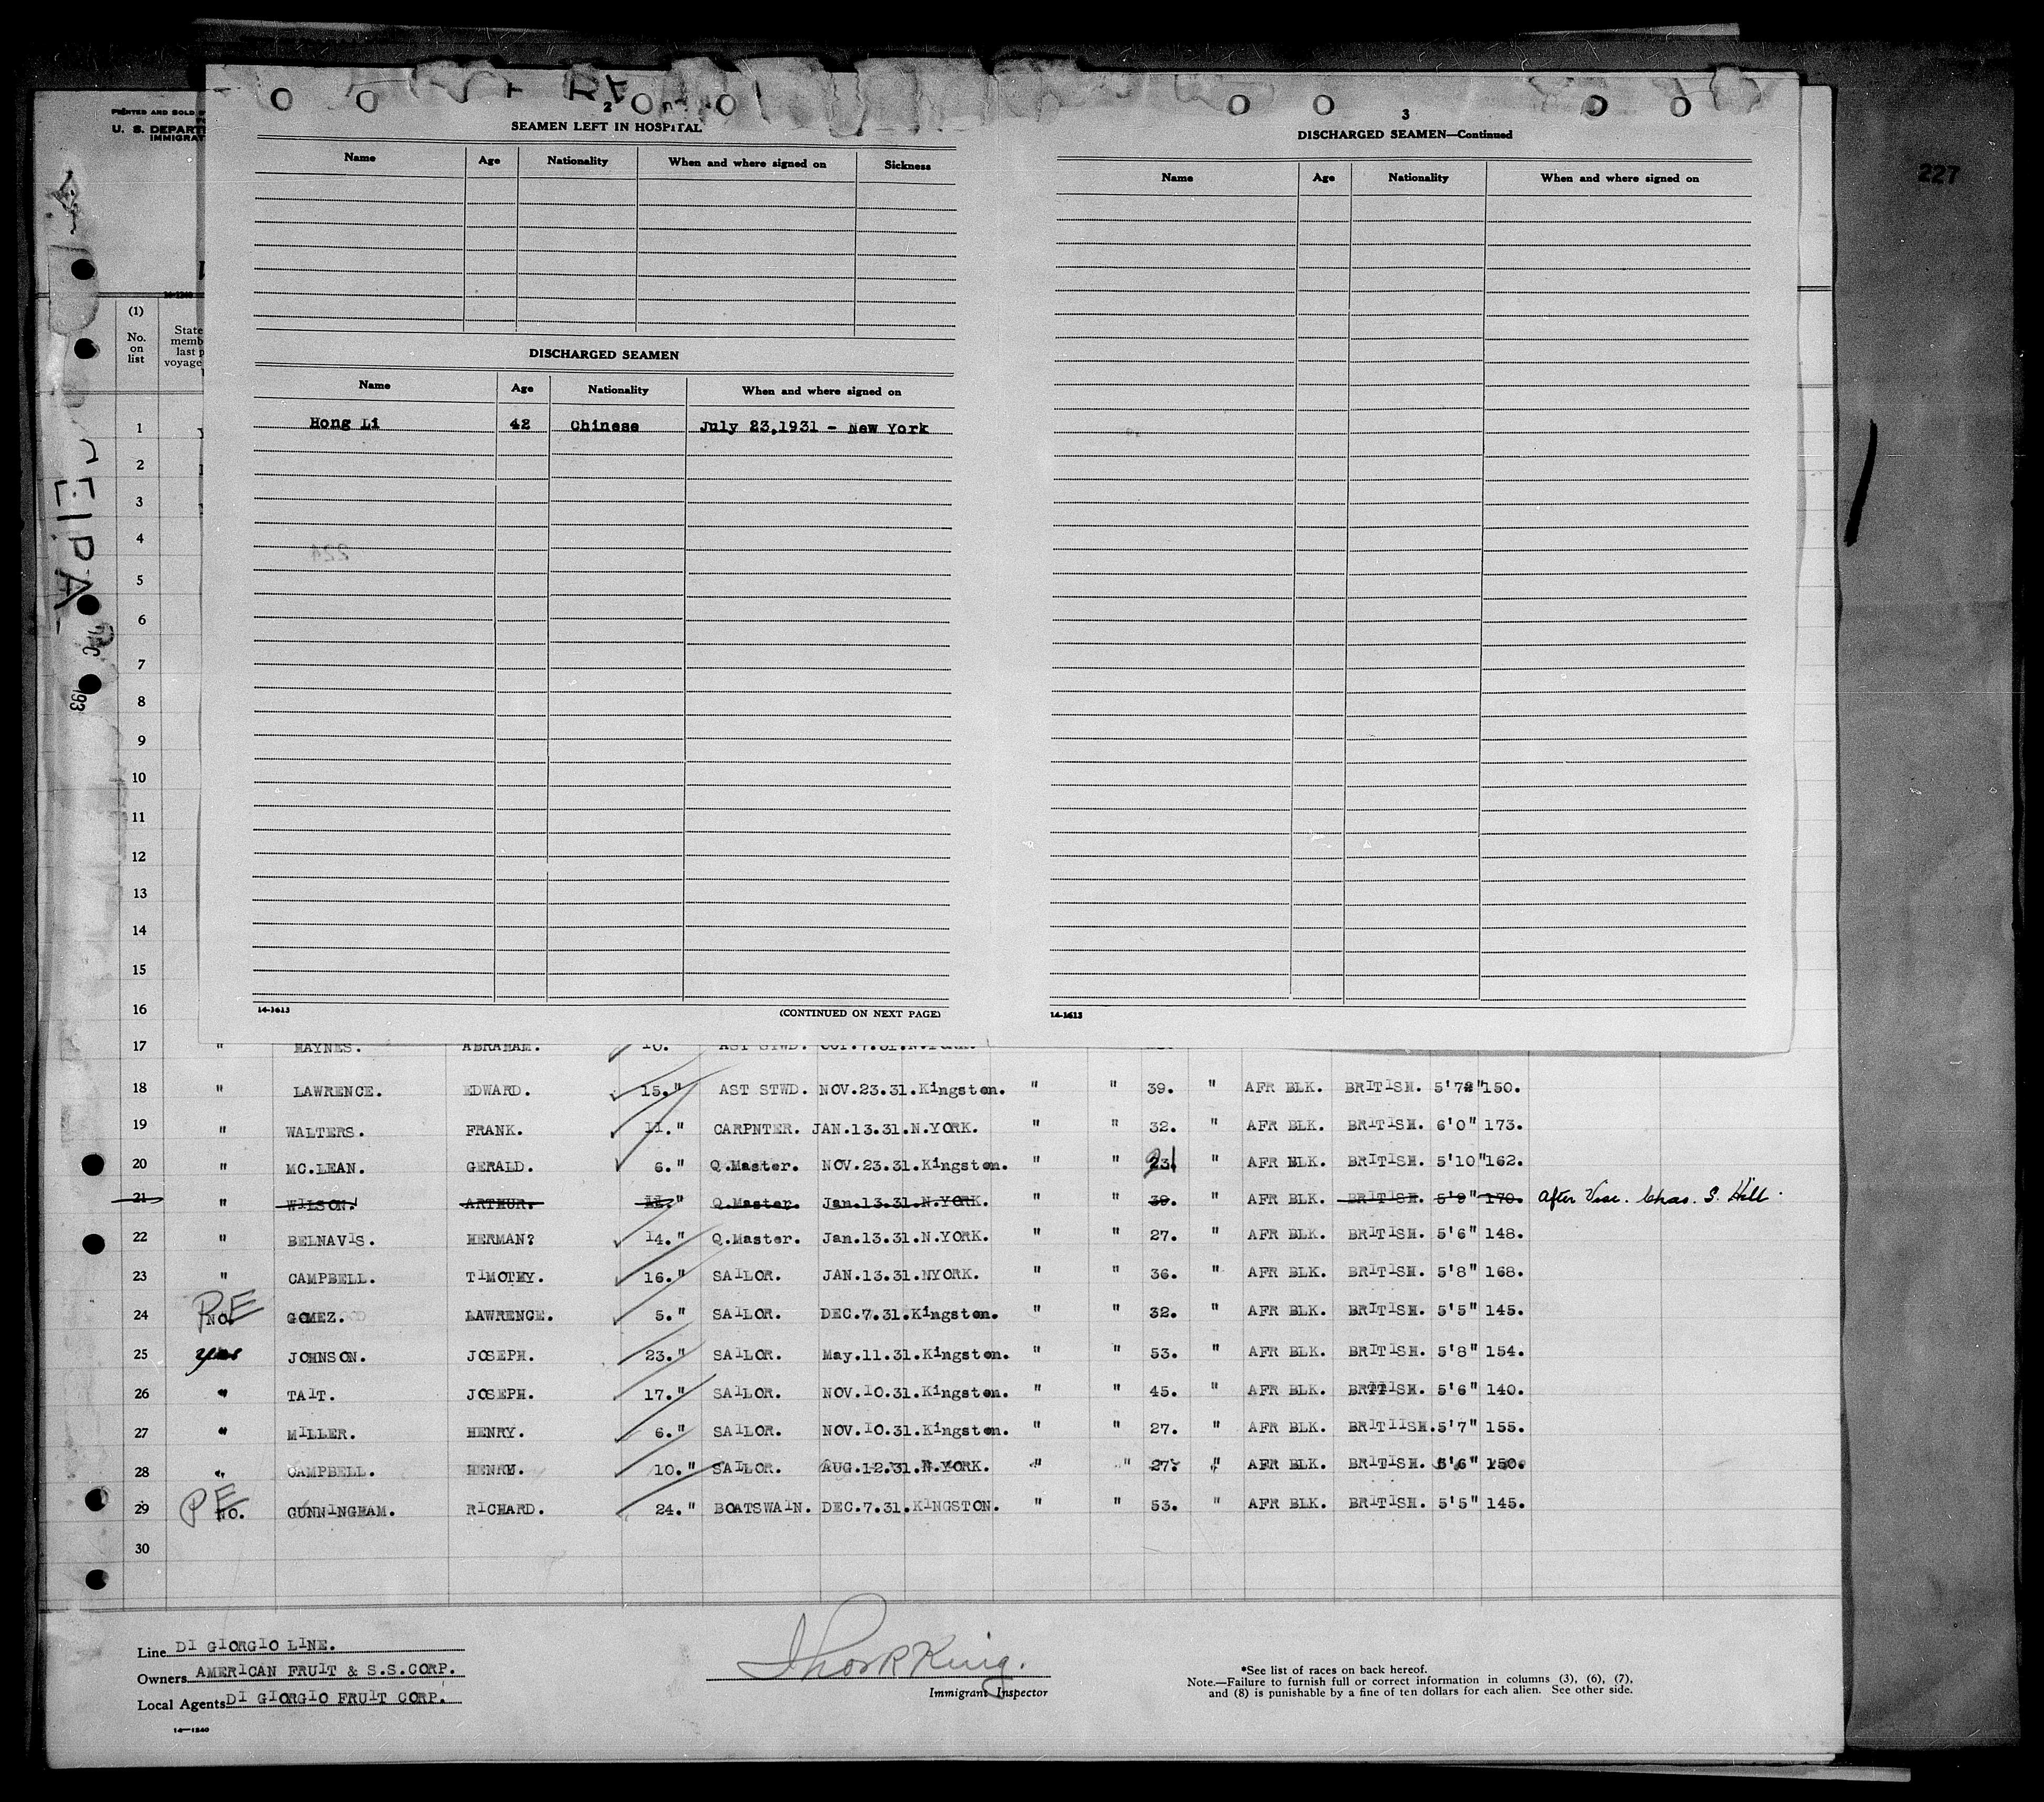 PRINTED AND SOLD
U. S. DEPART
IMMIGRAT
227
2
SEAMEN LEFT IN HOSPITAL
Name Age Nationality When and where signed on Sickness
DISCHARGED SEAMEN
Name Age Nationality When and where signed on
Hong Li 42 Chinese July 23,1931 - New York
14-1613 (CONTINUED ON NEXT PAGE)
3
DISCHARGED SEAMEN—Continued
Name Age Nationality When and where signed on
14-1613
(1)
No. on list
State
memb
last p
voyage
1
2
3
4
5
6
7
8
9
10
11
12
13
14
15
16
17 " HAYNES. ABRAHAM. 10. AST STWD. OCT.7.31.N.YORK.
18 " LAWRENCE. EDWARD. 15." AST STWD. NOV.23.31.Kingston. " " 39. " AFR BLK. BRITISH. 5'7½" 150.
19 " WALTERS. FRANK. 11." CARPNTER. JAN.13.31.N.YORK. " " 32. " AFR BLK. BRITISH. 6'0" 173.
20 " MC.LEAN. GERALD. 6." Q.Master. NOV.23.31.Kingston. " " AFR BLK. BRITISH. 5'10" 162.
21 " WILSON. ARTHUR. 11." Q.Master. Jan.13.31.N.YORK. " 39. " AFR BLK. BRITISH. 5'9" 170. After Vise. Chas. S. Hill.
22 " BELNAVIS. HERMAN? 14." Q.Master. Jan.13.31.N.YORK. " " 27. " AFR BLK. BRITISH. 5'6" 148.
23 " CAMPBELL. TIMOTHY. 16." SAILOR. JAN.13.31.NYORK. " " 36. " AFR BLK. BRITISH. 5'8" 168.
24 PE NO. GOMEZ. LAWRENCE. 5." SAILOR. DEC.7.31.Kingston. " " 32. " AFR BLK. BRITISH. 5'5" 145.
25 yes JOHNSON. JOSEPH. 23." SAILOR. May.11.31.Kingston. " " 53. " AFR BLK. BRITISH. 5'8" 154.
26 " TAIT. JOSEPH. 17." SAILOR. NOV.10.31.Kingston. " " 45. " AFR BLK. BRITISH. 5'6" 140.
27 " MILLER. HENRY. 6." SAILOR. NOV.10.31.Kingston. " " 27. " AFR BLK. BRITIISH. 5'7" 155.
28 " CAMPBELL. HENRY. 10." SAILOR. AUG.12.31.N.YORK. " " 27. " AFR BLK. BRITISH. 5'6" 150.
29 PE NO. GUNNINGHAM. RICHARD. 24." BOATSWAIN. DEC.7.31.KINGSTON. " " 53. " AFR BLK. BRITISH. 5'5" 145.
30
Line DI GIORGIO LINE.
Owners AMERICAN FRUIT & S.S.CORP.
Local Agents DI GIORGIO FRUIT CORP.
14—1240
Thos R King.
Immigrant Inspector
*See list of races on back hereof.
Note.—Failure to furnish full or correct information in columns (3), (6), (7),
and (8) is punishable by a fine of ten dollars for each alien. See other side.